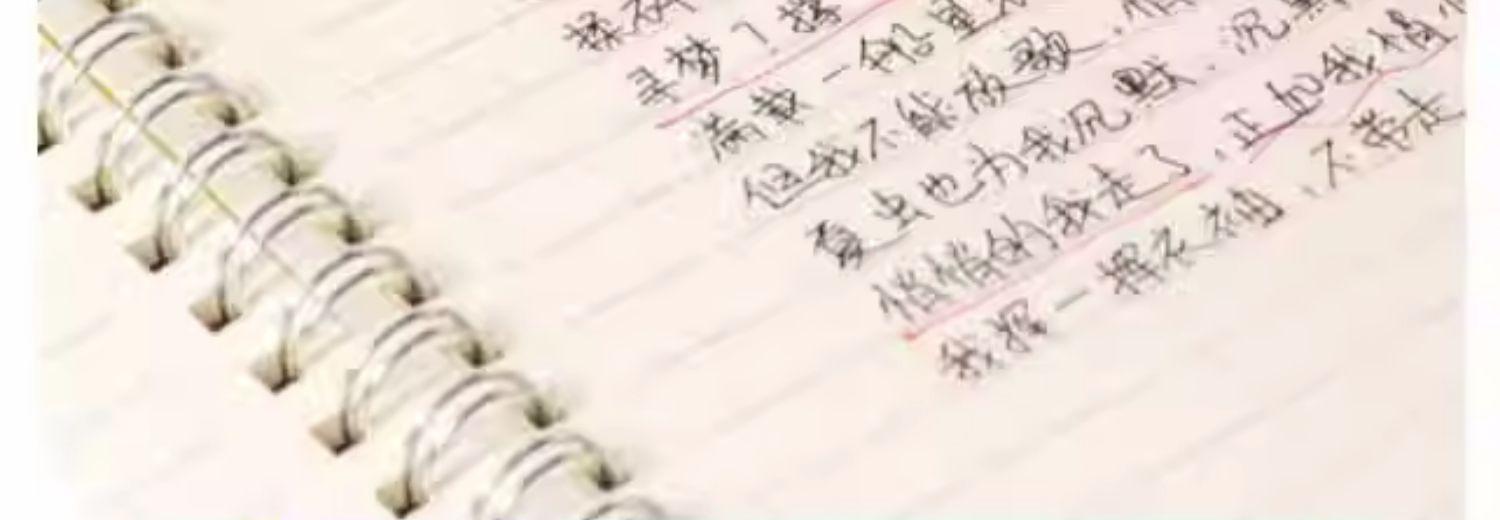 揉碎
寻梦？撑
满载一船星
但我不能放歌、悄
夏虫也为我沉默、沉默
悄悄的我走了，正如我悄
我挥一挥衣袖、不带走